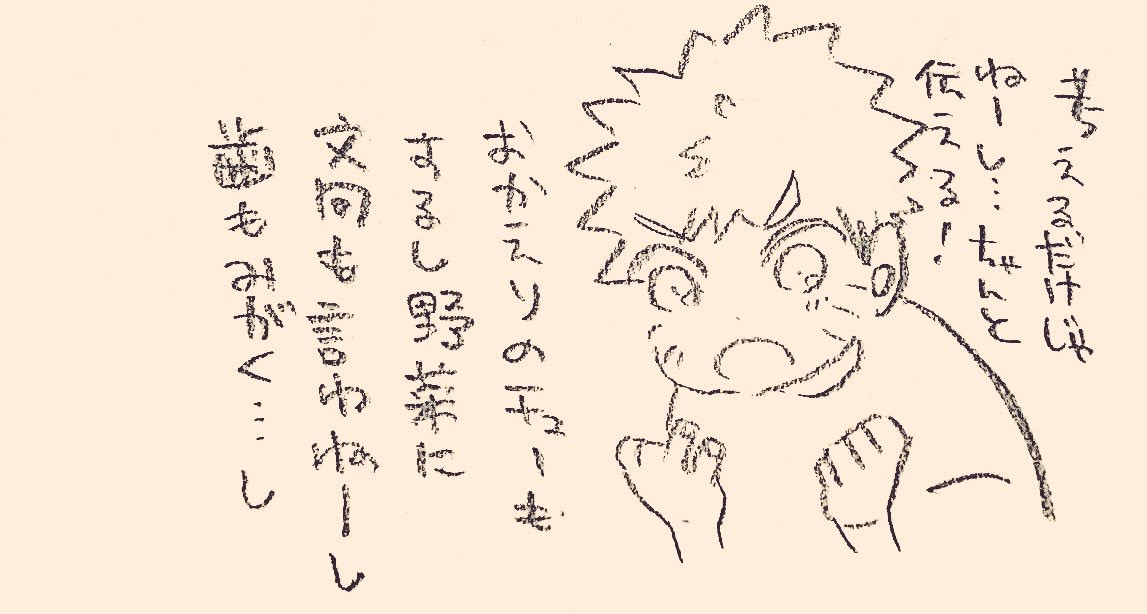 考えるだけじゃ
ねーし…ちゃんと
伝える!
おかえりのチューも
するし野菜に
文句も言わねーし
歯もみがく…し